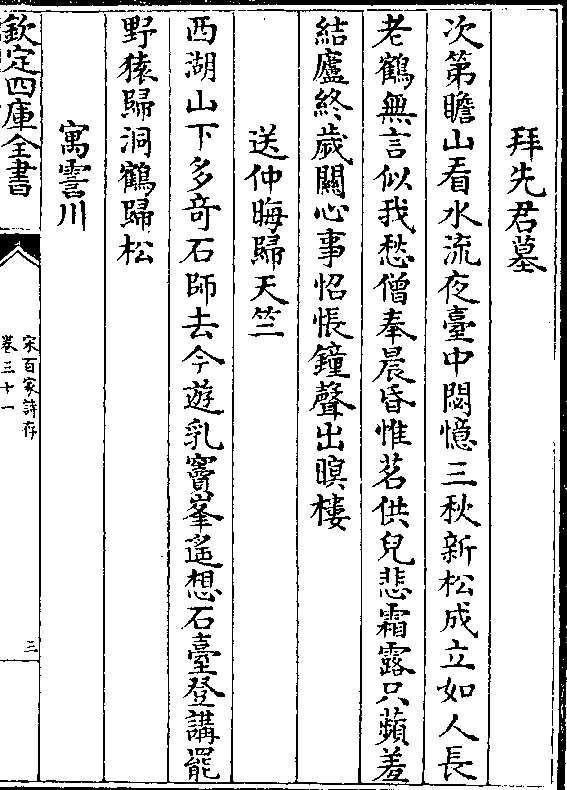 拜先君墓
次第瞻山看水流夜臺中閟憶三秋新松成立如人長
老鶴無言似我愁僧奉晨昏惟茗供兒悲霜露只蘋羞
結廬終歲關心事怊悵鐘聲出暝樓
送仲晦歸天竺
西湖山下多竒石師去今遊乳竇峯遥想石臺登講罷
野猿歸洞鶴歸松
寓霅川
欽定四庫全書
宋百家詩存
卷三十一
三